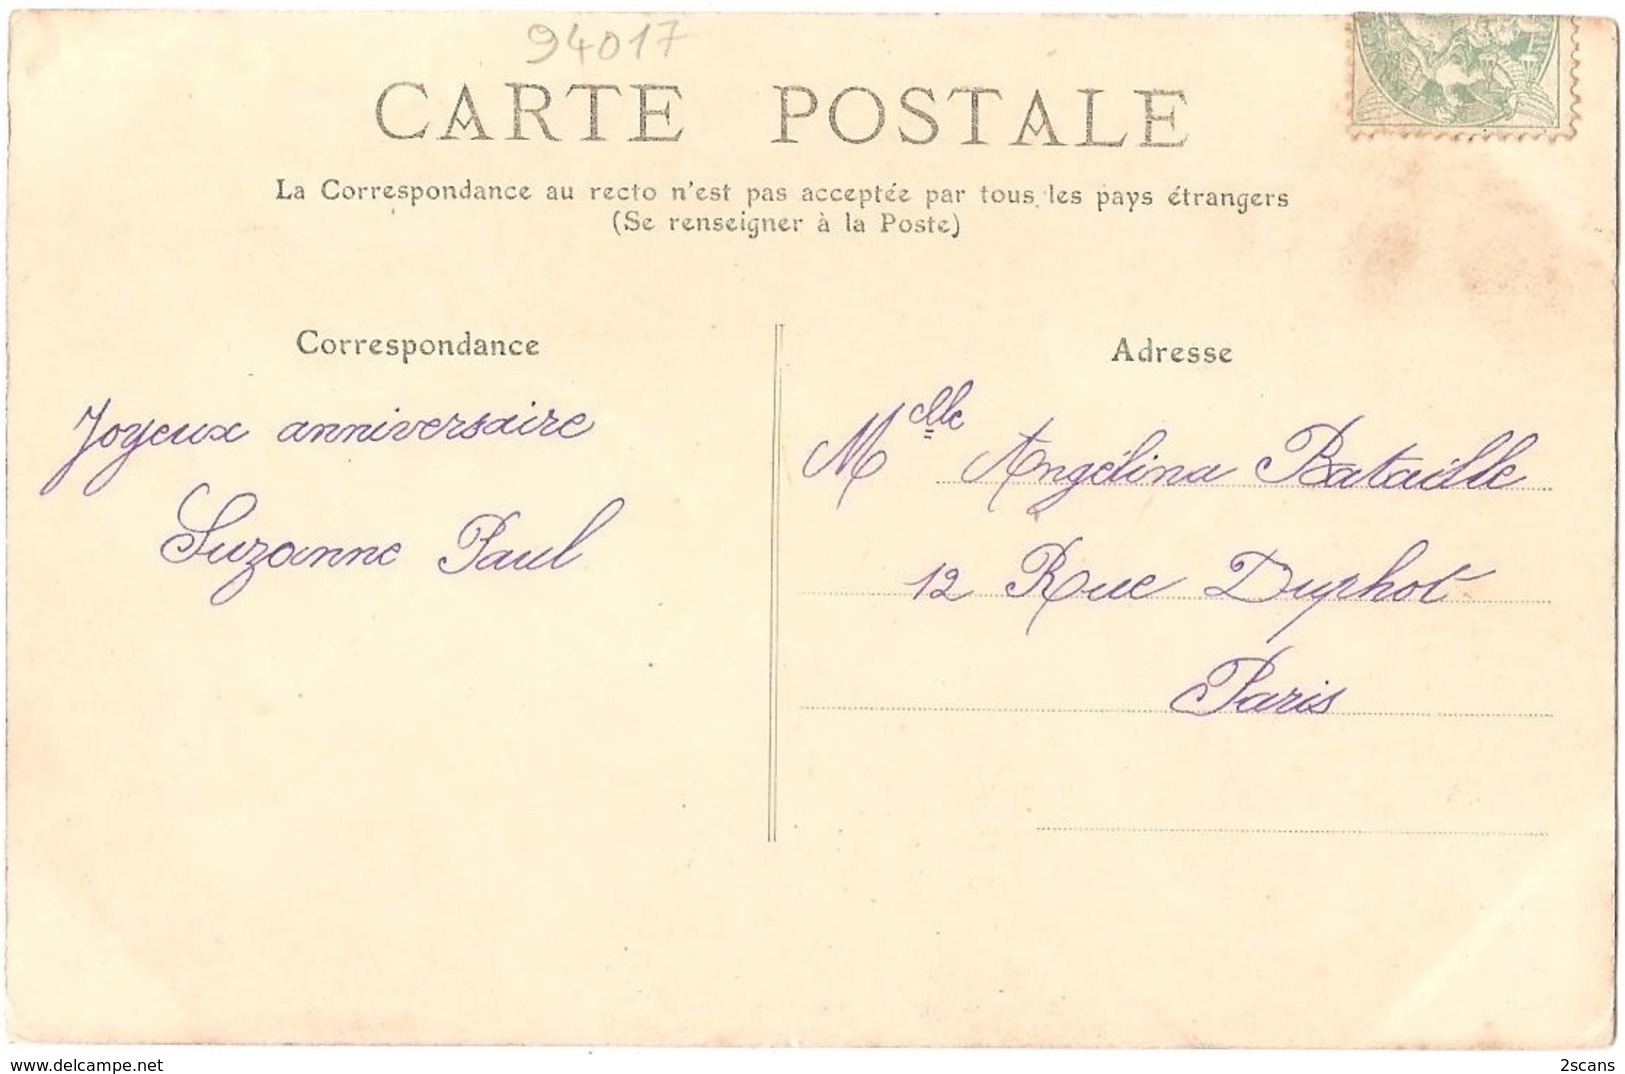 94017
CARTE POSTALE
La Correspondance au recto n'est pas acceptée par tous les pays étrangers
(Se renseigner à la Poste)
Correspondance
Joyeux anniversaire
Suzanne Paul
Adresse
Melle Angélina Bataille
12 Rue Duphot
Paris
https://www.delcampe.net
2scans